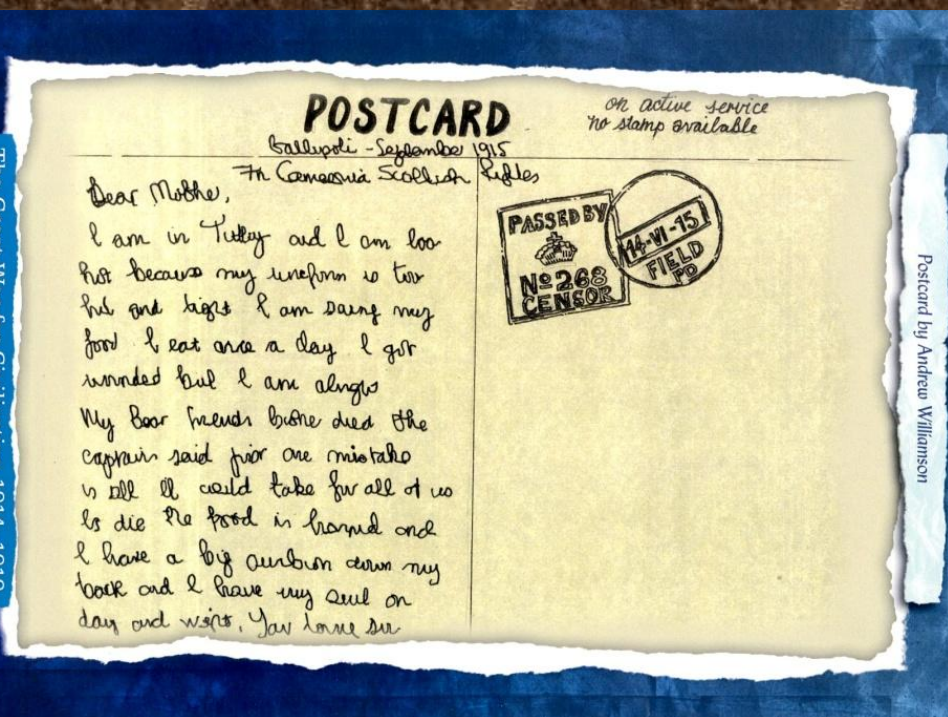 POSTCARD
on active service
no stamp available
Gallipoli - September 1915
7th Cameronia Scottish Rifles
Dear Mother,
I am in Turkey and I am too
hot because my uniform is too
hot and tight I am saving my
food I eat once a day I got
wounded but I am
My Best friends brother died the
captain said just one mistake
is all it could take for all of us
to die the food is horrid and
I have a big sunburn down my
back and I have my suit on
day and night. Your son
PASSED BY
Nº 268
CENSOR
14-VI-15
FIELD
PO
Postcard by Andrew Williamson